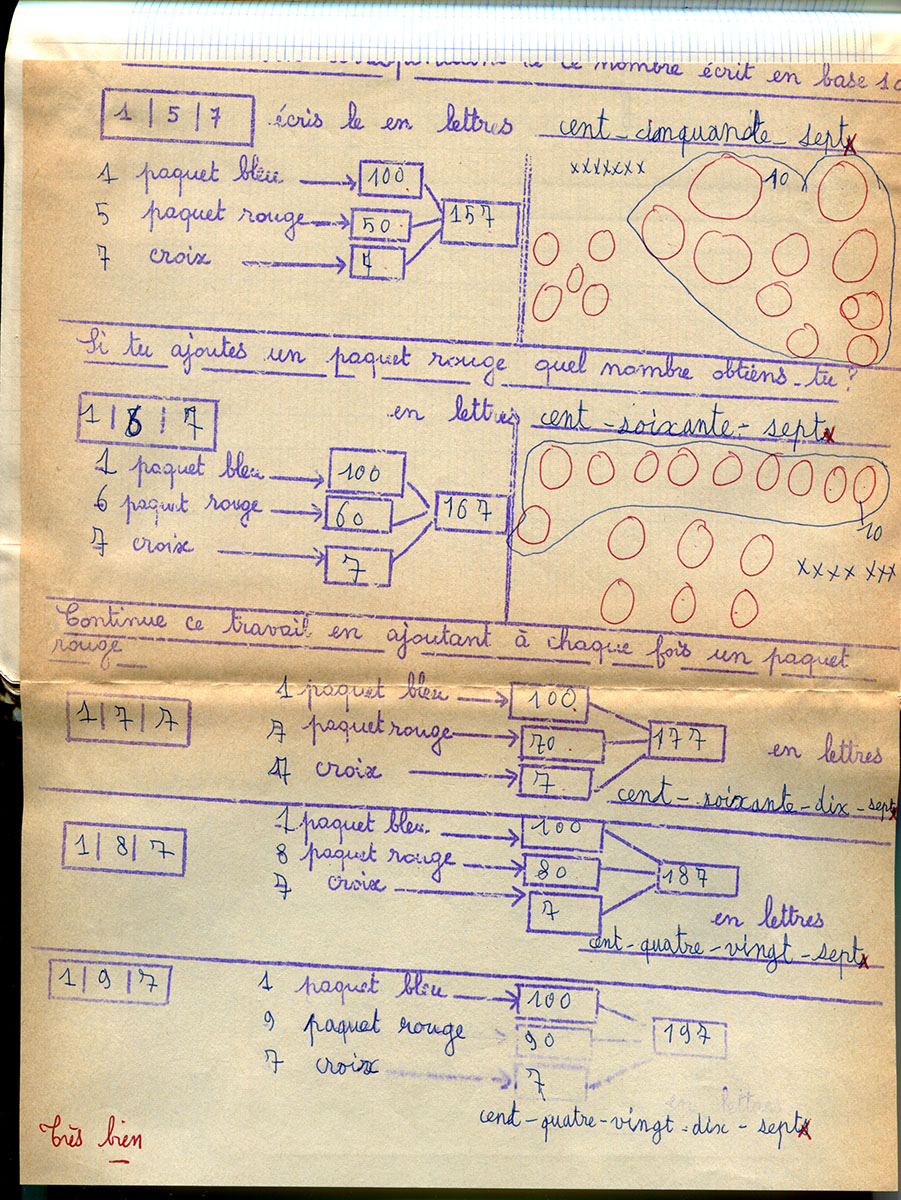 ce nombre écrit en base 10
1 | 5 | 7 écris le en lettres cent-cinquante-sept
1 paquet bleu 100
5 paquet rouge 50 157
7 croix 7
xxxxxxx 10
Si tu ajoutes un paquet rouge quel nombre obtiens-tu ?
1 | 6 | 7 en lettres cent-soixante-sept
1 paquet bleu 100
6 paquet rouge 60 167
7 croix 7
10
xxxx xxx
Continue ce travail en ajoutant à chaque fois un paquet
rouge
1 | 7 | 7
1 paquet bleu 100
7 paquet rouge 70 177 en lettres
7 croix 7
cent-soixante-dix-sept
1 | 8 | 7
1 paquet bleu 100
8 paquet rouge 80 187
7 croix 7
en lettres
cent-quatre-vingt-sept
1 | 9 | 7
1 paquet bleu 100
9 paquet rouge 90 197
7 croix 7
en lettres
cent-quatre-vingt-dix-sept
Très bien